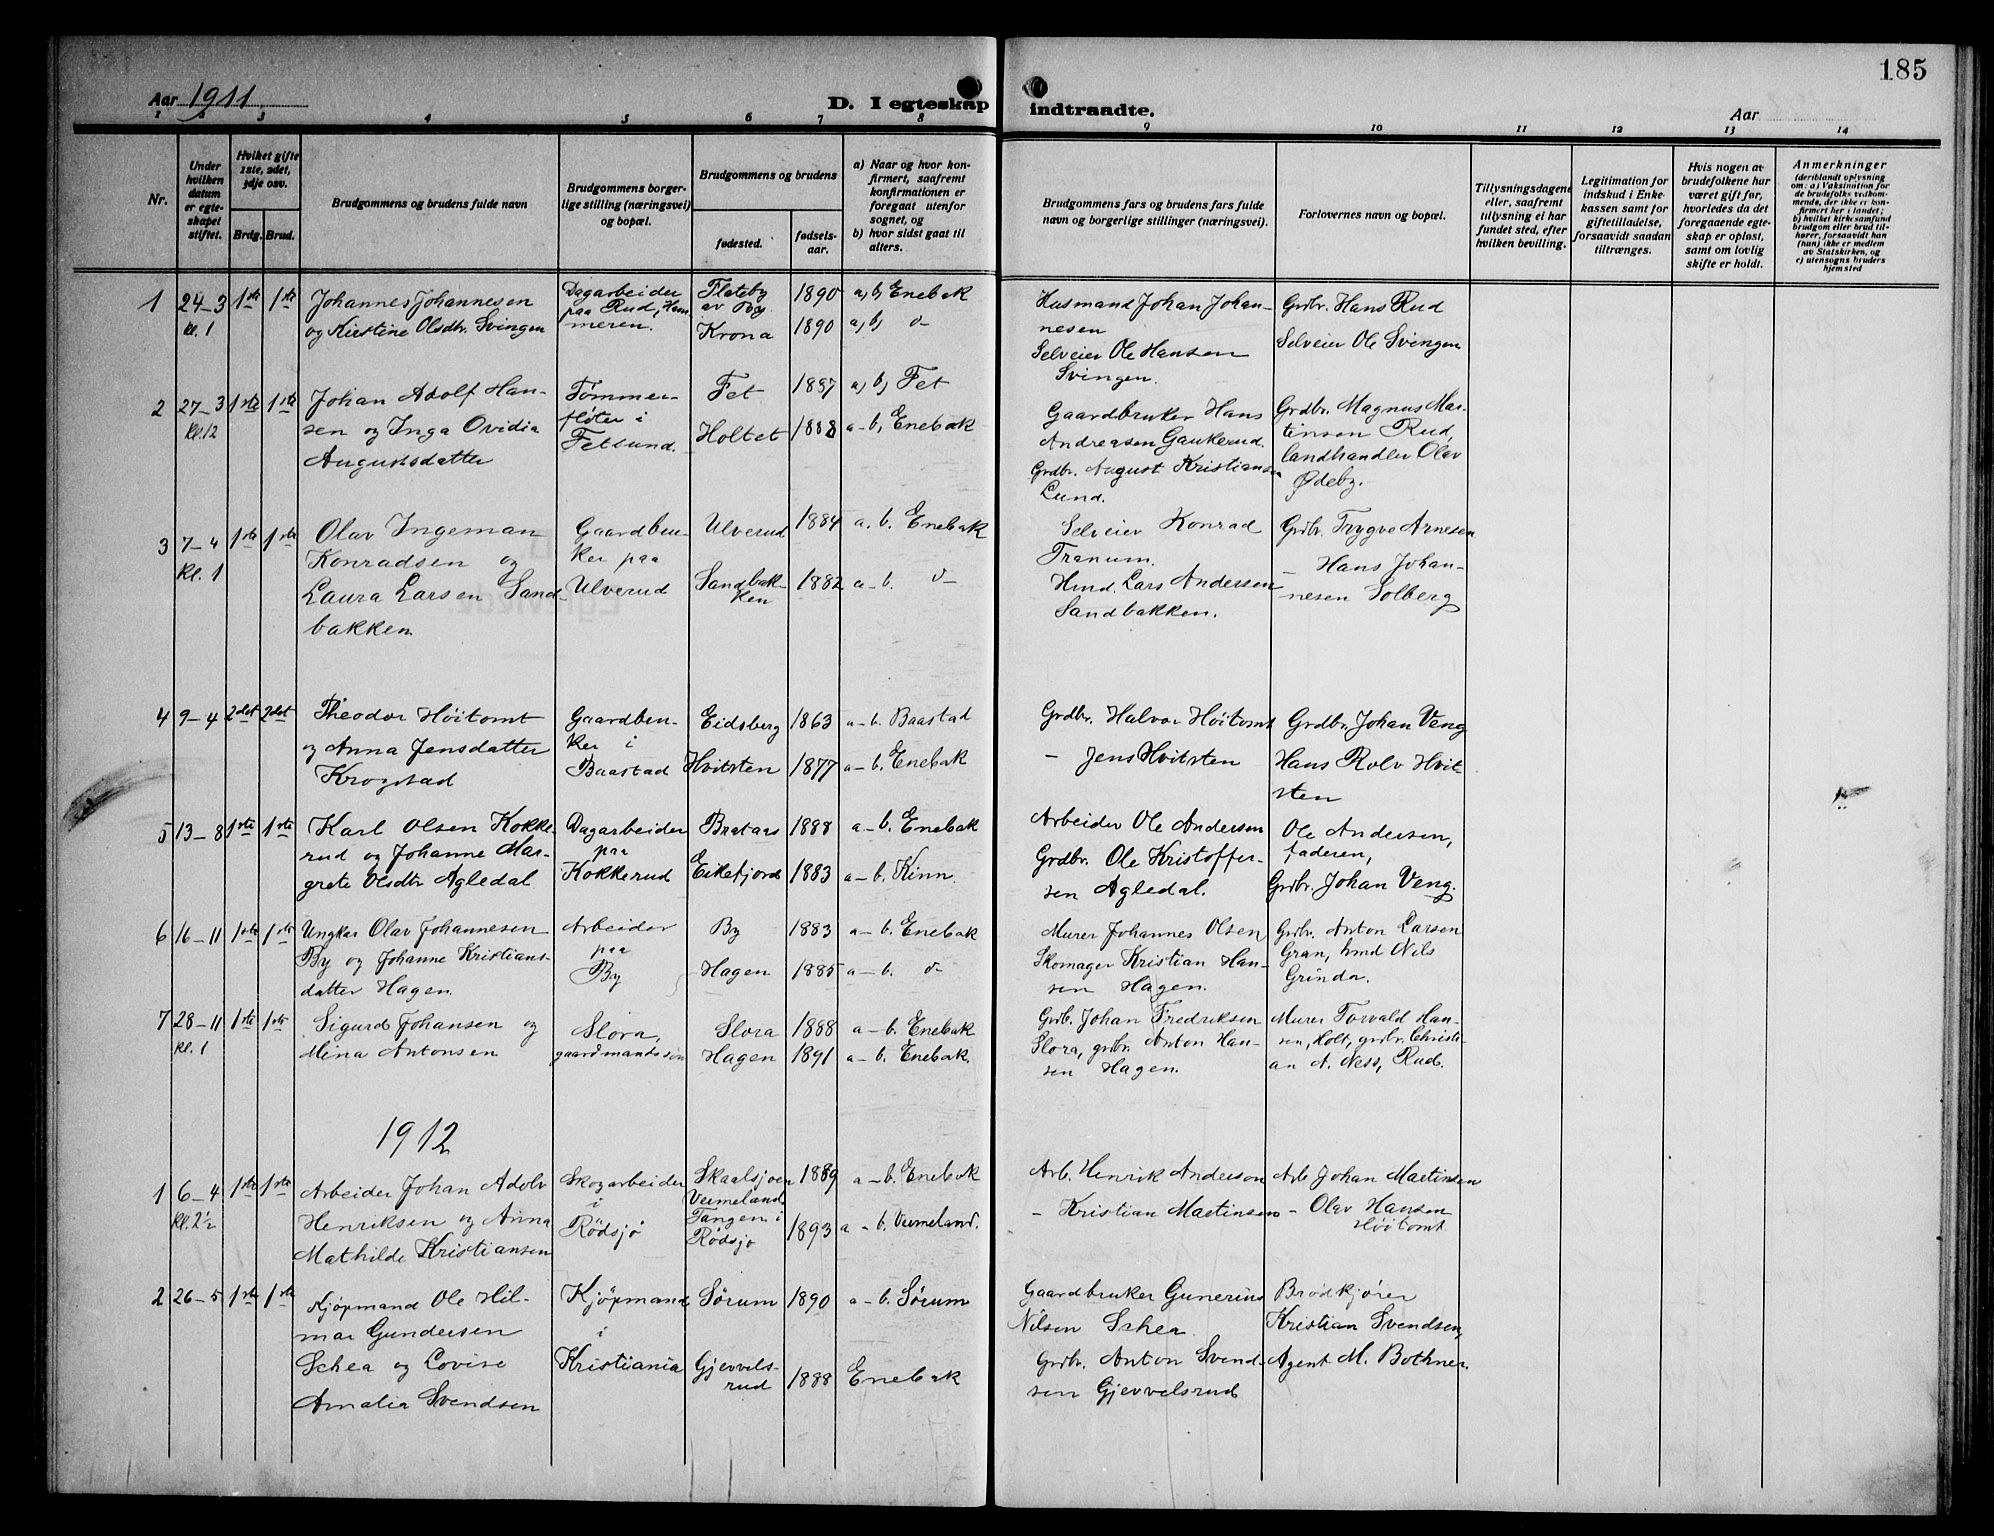 185
Aar 1911.
D. I egteskap indtraadte.
Aar
1 2 3 4 5 6 7 8 9 10 11 12 13 14
Nr.
Under hvilken datum er egteskapet stiftet.
Hvilket gifte 1ste, 2det, 3dje osv.
Brdg. Brud.
Brudgommens og brudens fulde navn
Brudgommens borgerlige stilling (næringsvei) og bopæl.
Brudgommens og brudens
fødested.
fødselsaar.
a) Naar og hvor konfirmert, saafremt konfirmationen er foregaat utenfor sognet, og
b) hvor sidst gaat til alters.
Brudgommens fars og brudens fars fulde navn og borgerlige stillinger (næringsvei).
Forlovernes navn og bopæl.
Tillysningsdagene eller, saafremt tillysning ei har fundet sted, efter hvilken bevilling.
Legitimation for indskud i Enkekassen samt for giftetilladelse, forsaavidt saadan tiltrænges.
Hvis nogen av brudefolkene har været gift før, hvorledes da det foregaaende egteskap er opløst, samt om lovlig skifte er holdt.
Anmerkninger
(deriblandt oplysning om: a) Vaksination for de brudefolks vedkommende, der ikke er konfirmert her i landet;
b) hvilket kirkesamfund brudgom eller brud tilhører, forsaavidt han (hun) ikke er medlem av Statskirken, og
c) utensogns bruders hjemsted
1 24-3 kl. 1 1ste 1ste
Johannes Johannesen
og Kirstine Olsdtr. Svingen
Dagarbeider
paa Rud, Ham
meren.
Flateby
av By
Krona
1890
1890
a, b, Enebak
a, b, d-
Husmand Johan Johan-
nesen
Selveier Ole Hansen
Svingen.
Grdbr. Hans Rud
Selveier Ole Svingen
2 27-3 kl. 12 1ste 1ste
Johan Adolf Han-
sen og Inga Ovidia
Augustsdatter
Tømmer-
fløter i
Fetsund.
Fet
Holtet
1887
1888
a, b, Fet
a-b, Enebak
Gaardbruker Hans
Andreasen Gaukerud.
Grdbr. August Kristiansen
Lund.
Grdbr. Magnus Mar-
tinsen Rud,
landhandler Olav
Ødeby.
3 7-4 kl. 1 1ste 1ste
Olav Ingeman
Konradsen og
Laura Larsen Sand-
bakken.
Gaardbru-
ker paa
Ulverud
Ulverud
Sandbak-
ken
1884
1882
a. b. Enebak
a-b. d-
Selveier Konrad
Tranum.
Hmd. Lars Andersen
Sandbakken.
Grdbr. Trygve Arnesen
- Hans Johan-
nesen Solberg
4 9-4 2det 2det
Theodor Høitomt
og Anna Jensdatter
Krogstad
Gaardbru-
ker i
Baastad
Eidsberg
Hvitsten
1863
1877
a-b. Baastad
a-b. Enebak
Grdbr. Halvor Høitomt
- Jens Hvitsten
Grdbr. Johan Veng
Hans Rolv Hvit-
sten
5 13-8 1ste 1ste
Karl Olsen Kokke-
rud og Johanne Mar-
grete Olsdtr Agledal
Dagarbeider
paa
Kokkerud
Brataas
Eikefjord
1888
1883
a-b. Enebak
a-b. Kinn.
Arbeider Ole Andersen
Grdbr. Ole Kristoffer-
sen Agledal.
Ole Andersen,
faderen,
Grdbr. Johan Veng.
6 16-11 1ste 1ste
Ungkar Olav Johannesen
By og Johanne Kristians-
datter Hagen.
Arbeider
paa
By
By
Hagen
1883
1885
a-b. Enebak
a-b. d-
Murer Johannes Olsen
Skomager Kristian Han-
sen Hagen.
Grdbr. Anton Larsen
Gran, hmd Nils
Grinder.
7 28-11 kl. 1 1ste 1ste
Sigurd Johansen og
Mina Antonsen
Slora,
gaardmandssøn
Slora
Hagen
1888
1891
a-b. Enebak
a-b. Enebak.
Grdb. Johan Fredriksen
Slora, grdbr. Anton Han-
sen Hagen.
Murer Torvald Han-
sen, Holt, grdbr. Christi-
an A. Ness, Rud.
1912
1 6-4 kl. 2½ 1ste 1ste
Arbeider Johan Adolv
Henriksen og Anna
Mathilde Kristiansen
Skogarbeider
i
Rødsjø
Skaalsjøen
Vermeland
Tangen i
Rødsjø
1889
1893
a-b. Enebak
a-b. Vermeland.
Arb. Henrik Anderson
- Kristian Martinsen
Arb Johan Martinsen
- Olav Hansen
Høitomt
2 26-5 1ste 1ste
Kjøpmand Ole Hil-
mar Gundersen
Schea og Lovise
Amalia Svendsen
Kjøpmand
i
Kristiania
Sørum
Gjevvels-
rud
1890
1888
a-b. Sørum
Enebak
Gaardbruker Gunerius
Nilsen Schea.
Grdbr. Anton Svend-
sen Gjevvelsrud
Brødkjører
Kristian Svendsen,
Agent M. Bothner.